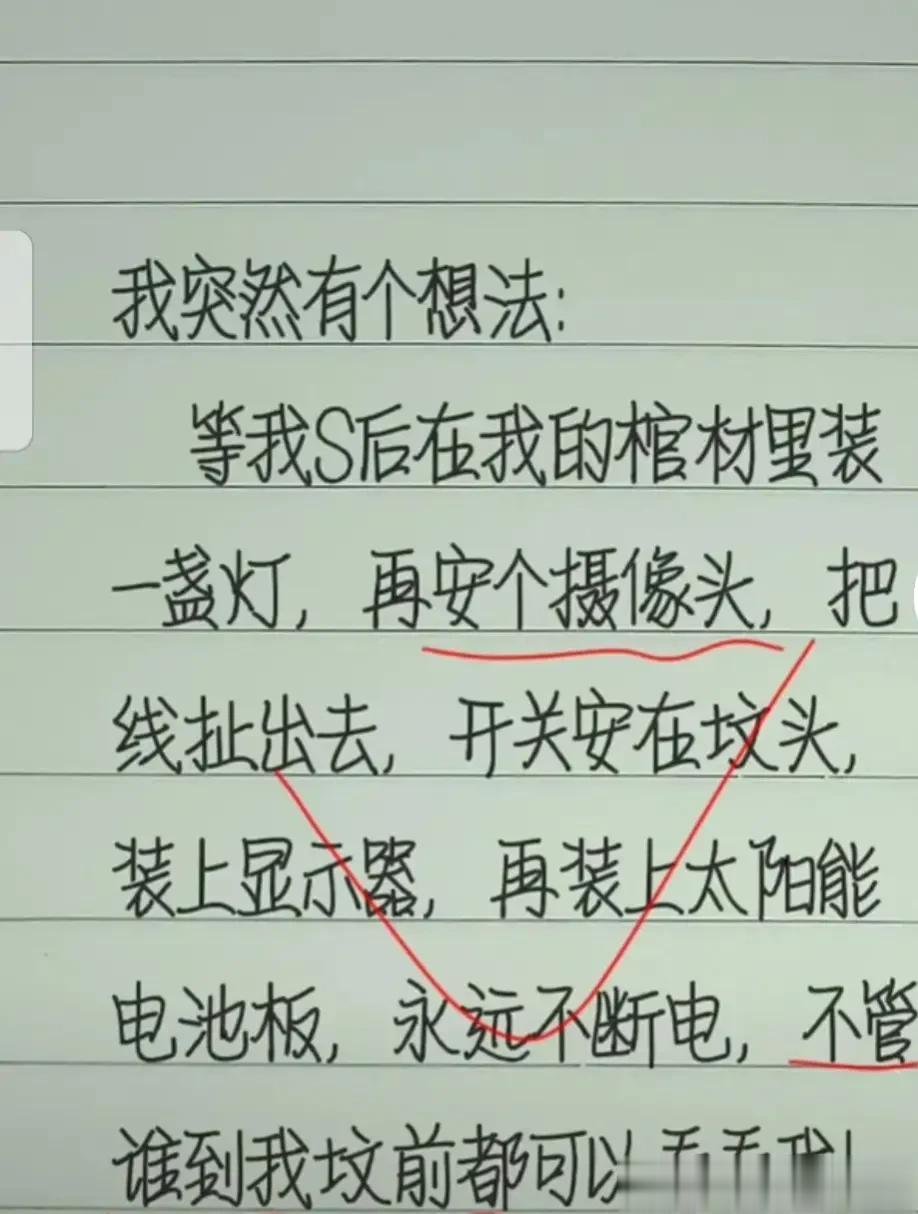 我突然有个想法:
等我S后在我的棺材里装
一盏灯，再安个摄像头，把
线扯出去，开关安在坟头，
装上显示器，再装上太阳能
电池板，永远不断电，不管
谁到我坟前都可以看看我!